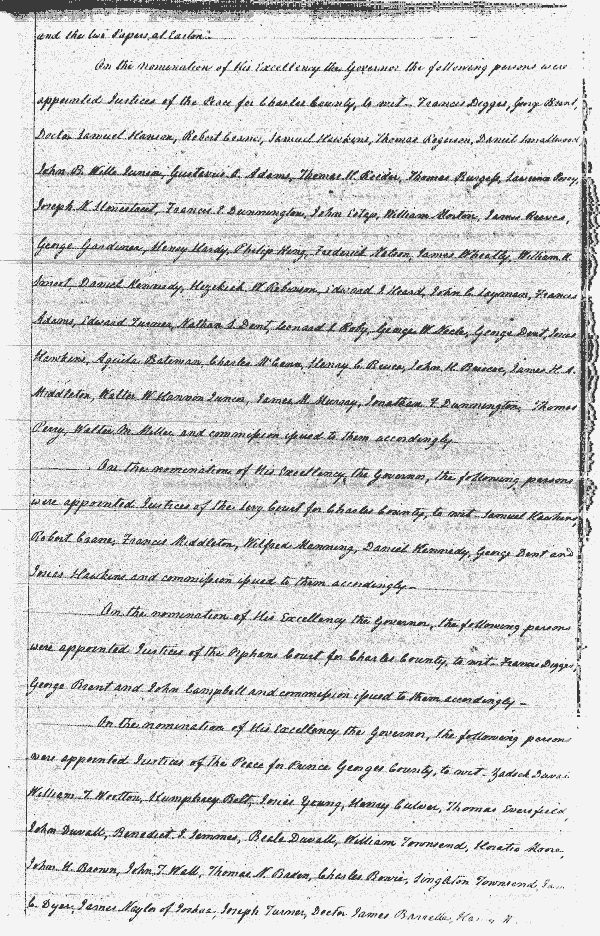 and the two Papers, at Easton.
On the nomination of His Excellency the Governor the following persons were
appointed Justices of the Peace for Charles County, to wit - Francis Digges, George Brent,
Doctor Samuel Hanson, Robert Crane, Samuel Hawkins, Thomas Rogerson, Daniel Smallwood
John B. Wills Junior, Gustavus A. Adams, Thomas H. Reeder, Thomas Burgess, Lawrence Posey,
Joseph N. Stonestreet, Francis E Dunnington, John Estep, William Morton, James Reeves,
George Gardiner, Henry Hardy, Philip King, Frederick Nelson, James Wheatly, William K.
Smoot, Daniel Kennedy, Hezekiah W Robinson, Edward J Heard, John C. Layman, Francis
Adams, Edward Turner, Nathan S. Dent, Leonard S Roby, George W. Neale, George Dent, Josias
Hawkins, Aquila Bateman, Charles McCann, Henry C. Bruce, John H. Briscoe, James H. A.
Middleton, Walter W Hannon Junior, James M. Murray, Jonathan T. Dunnington, Thomas
Perry, Walter M Miller and commission issued to them accordingly.
On the nomination of His Excellency, the Governor, the following persons
were appointed Justices of the Levy Court for Charles County, to wit - Samuel Hawkins
Robert Crane, Francis Middleton, Wilfred Manning, Daniel Kennedy, George Dent and
Josias Hawkins and commission issued to them accordingly -
On the nomination of His Excellency the Governor, the following persons
were appointed Justices of the Orphans Court for Charles County, to wit - Francis Digges,
George Brent and John Campbell and commission issued to them accordingly -
On the nomination of His Excellency the Governor, the following persons
were appointed Justices of the Peace for Prince Georges County, to wit - Zadock
William T. Wootton, Humphrey Belt, Josias Young, Henry Culver, Thomas Eversfield,
John Duvall, Benedict J. Semmes, Beale Duvall, William Townsend, Horatio Moore,
John H. Brown, John T. Wall, Thomas N. Baden, Charles Bowie, Singleton Townsend,
C. Dyer, James Naylor of Joshua, Joseph Turner, Doctor James